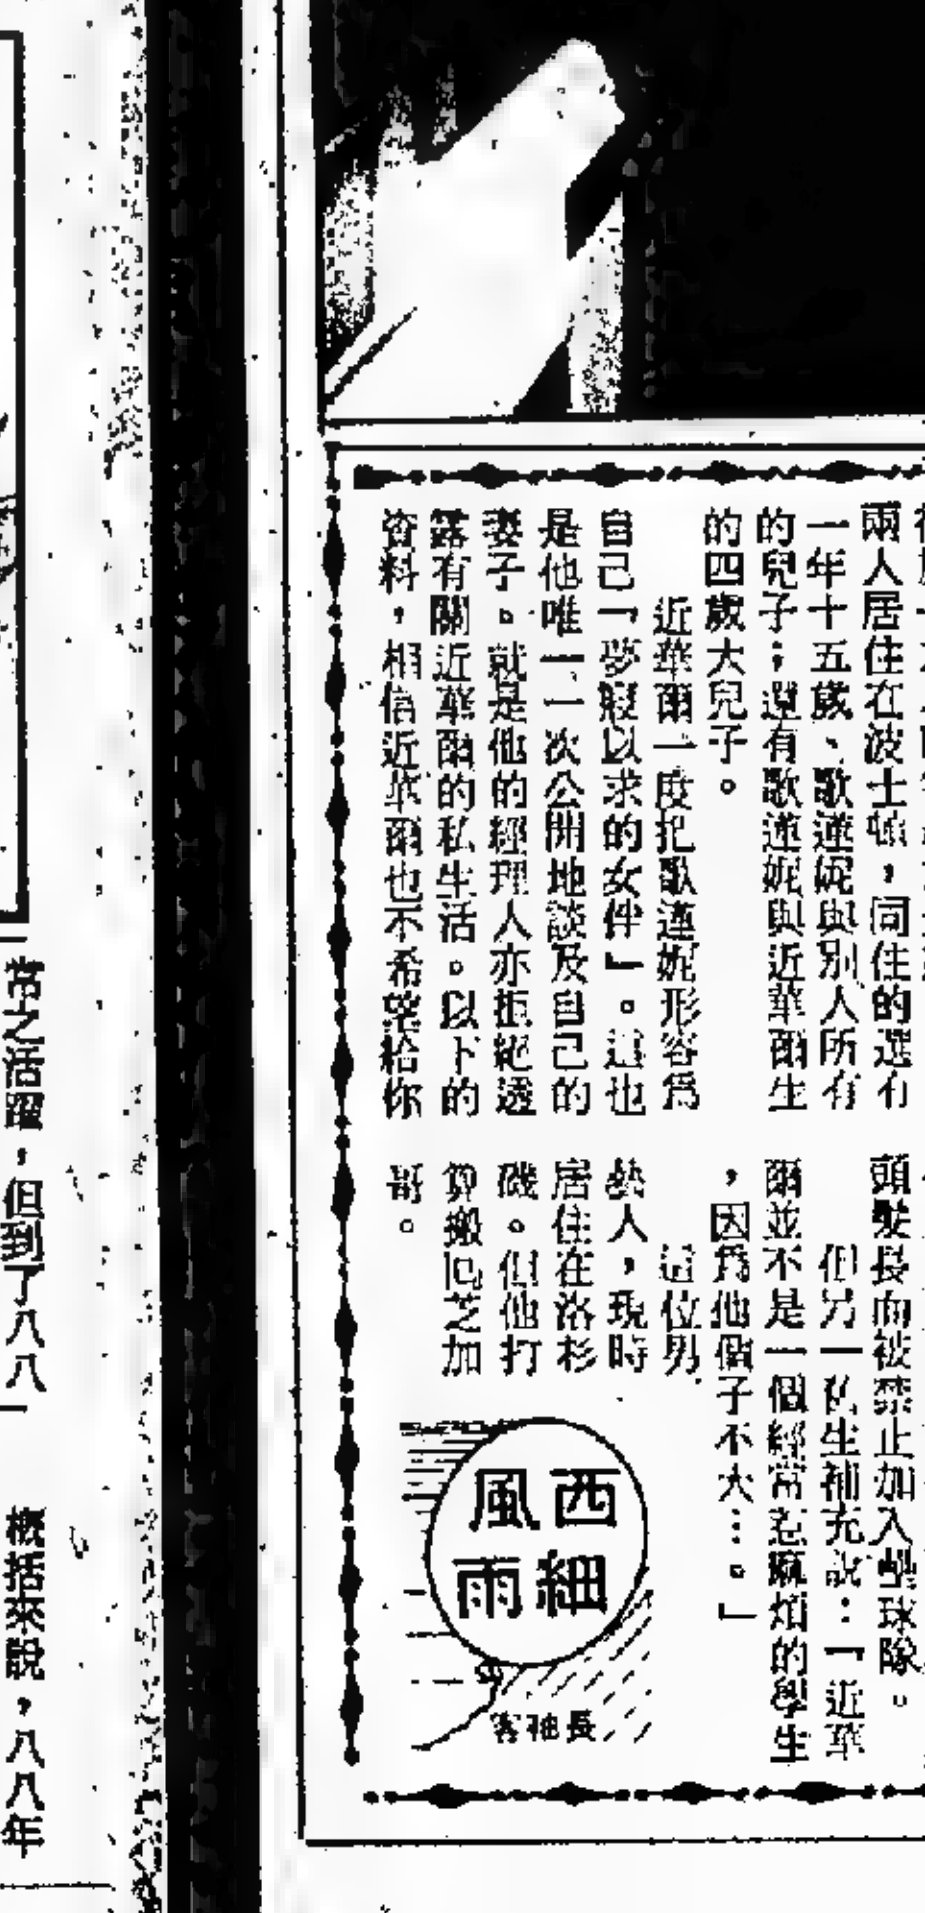 兩人居住在波士頓，同住的還有
一年十五歲、歌蓮妮與別人所有
的兒子；還有歌蓮妮與近華爾生
的四歲大兒子。
近華爾一度把歌蓮妮形容爲
自己「夢寐以求的女伴」。這也
是他唯一一次公開地談及自己的
妻子。就是他的經理人亦拒絕透
露有關近華爾的私生活。以下的
資料，相信近華爾也不希望給你
頭髮長而被禁止加入壘球隊。
但另一 生補充說：「近華
爾並不是一個經常惹麻煩的學生
，因爲他個子不大…。」
這位男
藝人，現時
居住在洛杉
磯。但他打
算搬回芝加
哥。
西細
風雨
長袖客
常之活躍，但到了八八
概括來說，八八年